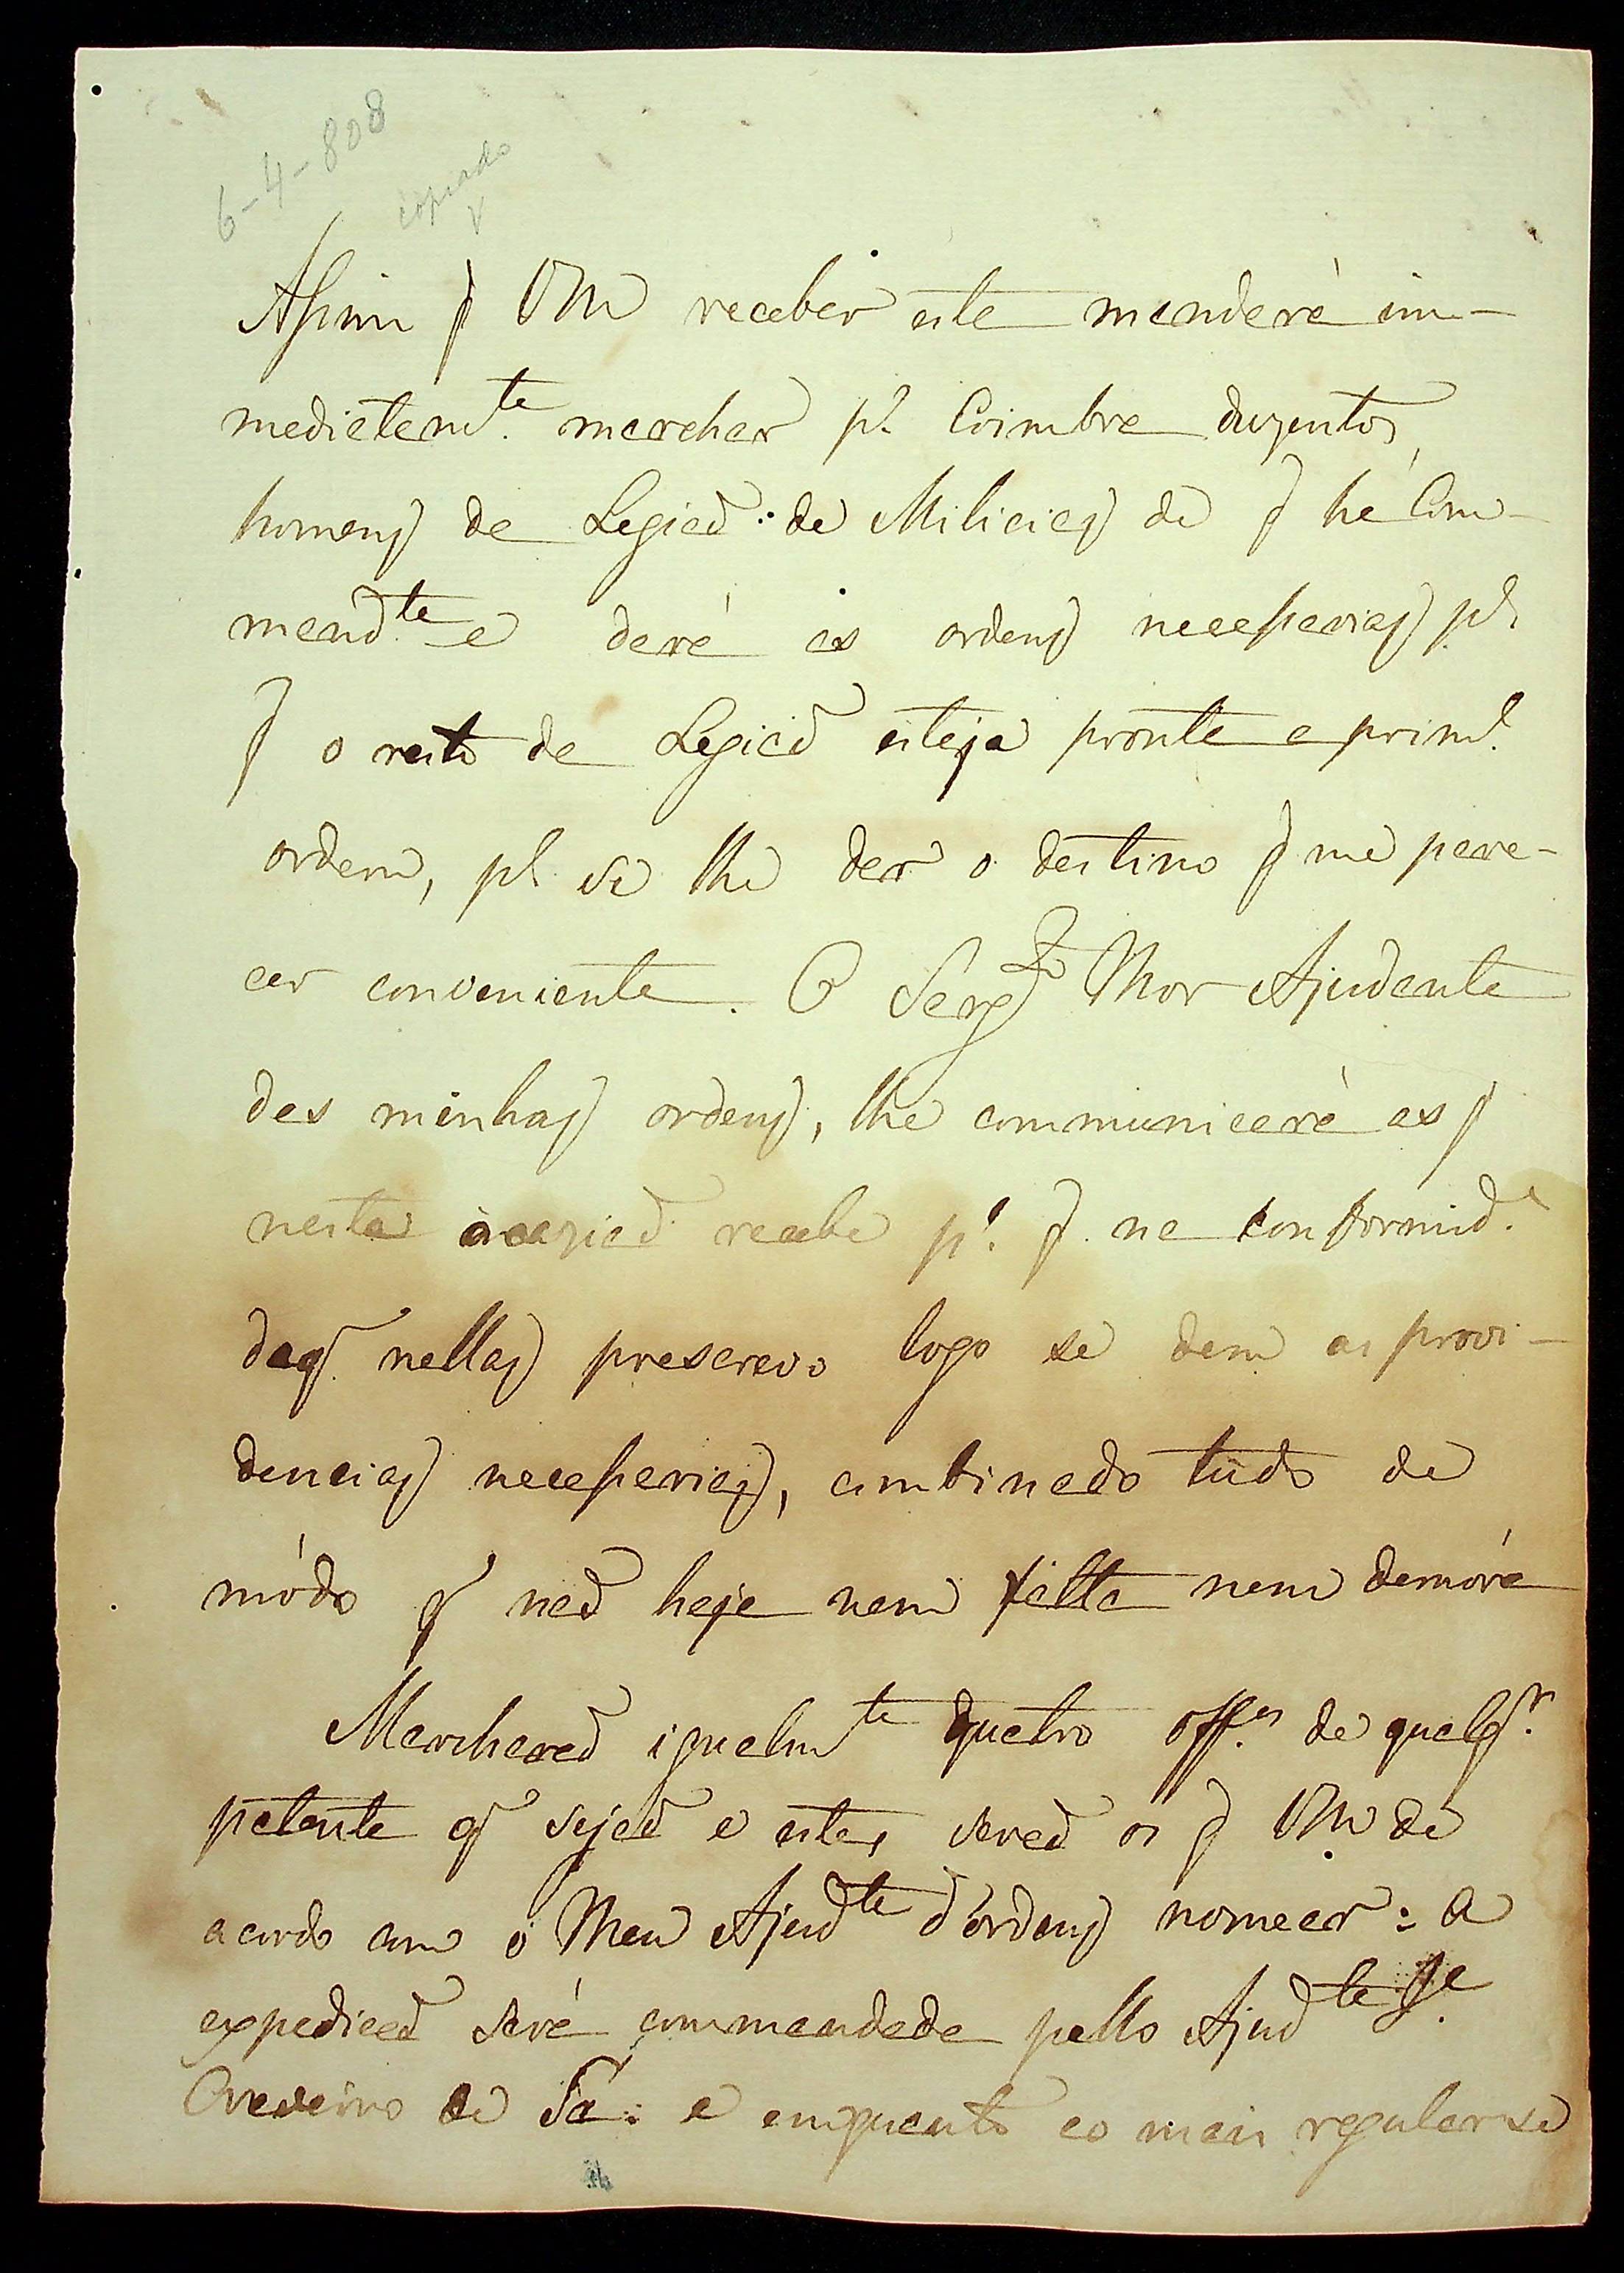 6-4-808
copiado
V
Assim q̃ VM receber este mandará im-
mediatam.te marchar p.ª Coimbra duzentos
homens da Legiaõ: de Milicias de q̃ he Com-
mand.te e dará as ordens necessarias p.ª
q̃ o resto da Legiaõ esteja pronta a prim.ª
ordem, p.ª se lhe dar o destino q̃ me pare-
cer conveniente. O Sarg.to Mor Ajudante
das minhas ordens, lhe communicará as q̃
nesta ocaziaõ recebe p.ª q̃ na conformid.e
daq̃ nellas prescrevo logo se dem as provi-
dencias necessarias, combinado tudo de
módo q̃ naõ haja nem falta nem demóra
Marcharaõ igualm.te quatro off.es de qualq.r
patente q̃ sejaõ e estes seraõ os q̃ VM de
acordo com o Meu Ajud.te d'ordens nomear: a
expediçaõ será commandada pello Ajud.te
de Sá: e emquanto ao mais regularse